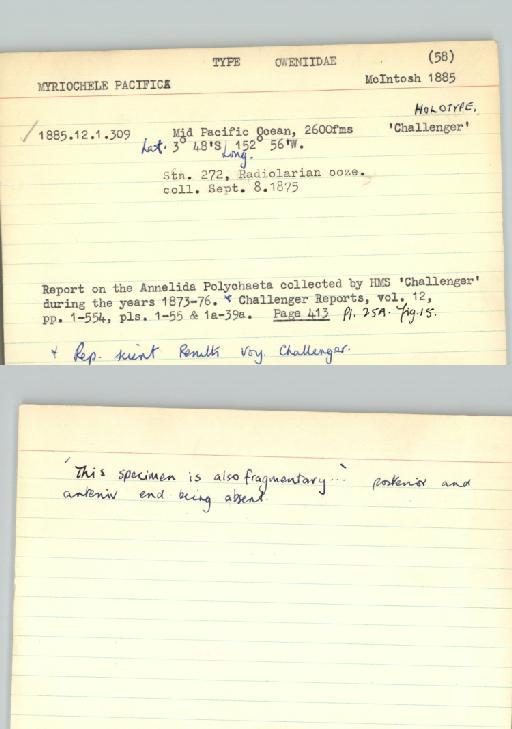 TYPE OWENIIDAE (58)
MYRIOCHELE PACIFICA McIntosh 1885
HOLOTYPE.
1885.12.1.309 Mid Pacific Ocean, 2600fms 'Challenger'
Lat. 3° 48'S Long. 152° 56'W.
Stn. 272, Radiolarian ooze.
coll. Sept. 8.1875
Report on the Annelida Polychaeta collected by HMS 'Challenger'
during the years 1873-76. + Challenger Reports, vol. 12,
pp. 1-554, pls. 1-55 & 1a-39a. Page 413 Pl. 25A. Fig. 15.
+ Rep. scient Results Voy. Challenger.
'This specimen is also fragmentary...' posterior and
anterior end being absent.